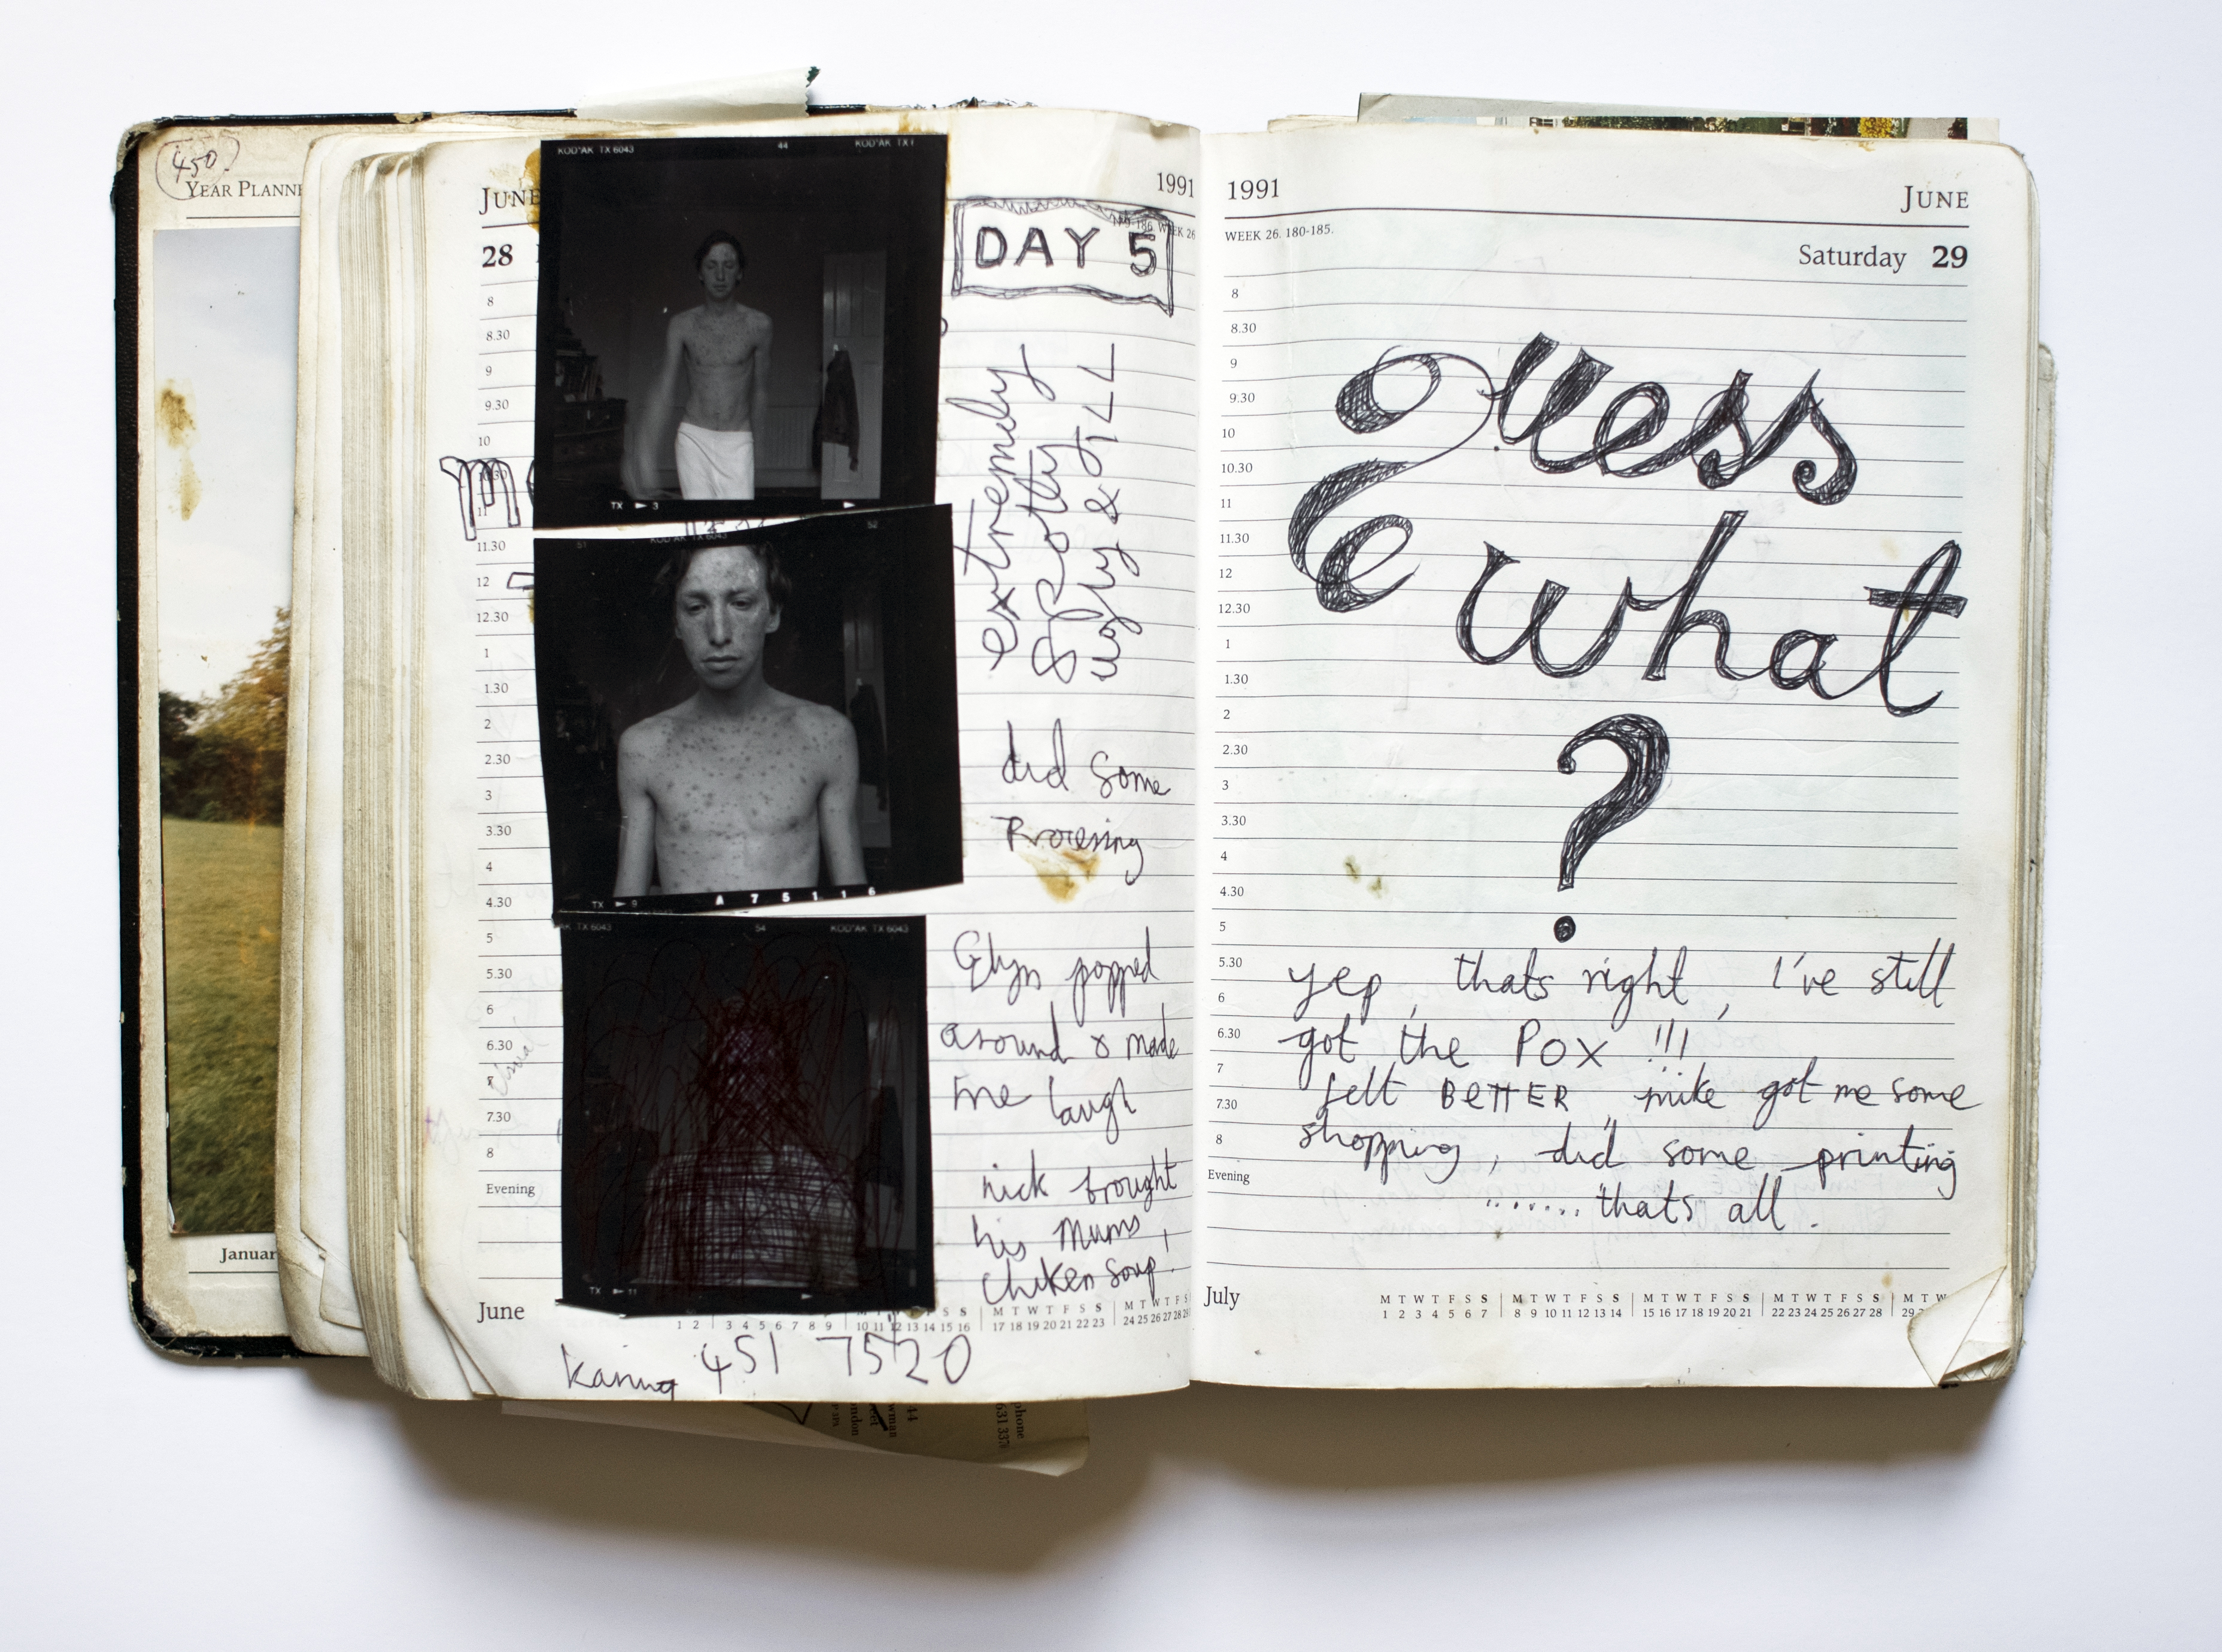 450
YEAR PLANNE
Januar
JUNE
1991
28
WEEK 26
DAY 5
8
8.30
9
9.30
10
10.30
11
11.30
12
12.30
1
1.30
2
2.30
3
3.30
4
4.30
5
5.30
6
6.30
7
7.30
8
Evening
KODAK TX 6043
44
TX 3
51
KODAK TX 6043
52
TX 9
A 75116
AK TX 6043
54
KODAK TX 6043
TX 11
extremely
spotty
ugly & ILL
did some
Glyn popped
around & made
me laugh
nick brought
his Mums
chiken soup!
June
1 2 3 4 5 6 7 8 9 10 11 12 13 14 15 16
M T W T F S S M T W T F S
17 18 19 20 21 22 23 24 25 26 27 28 29
451 7520
1991
JUNE
WEEK 26. 180-185.
Saturday 29
8
8.30
9
9.30
10
10.30
11
11.30
12
12.30
1
1.30
2
2.30
3
3.30
4
4.30
5
5.30
6
6.30
7
7.30
8
Evening
guess
what
?
yep, thats right, I've still
got the POX !!!
felt BETTER, mike got me some
shopping, did some printing
....... thats all.
July
M T W T F S S M T W T F S S M T W T F S S M T W T F S S M T W
1 2 3 4 5 6 7 8 9 10 11 12 13 14 15 16 17 18 19 20 21 22 23 24 25 26 27 28 29